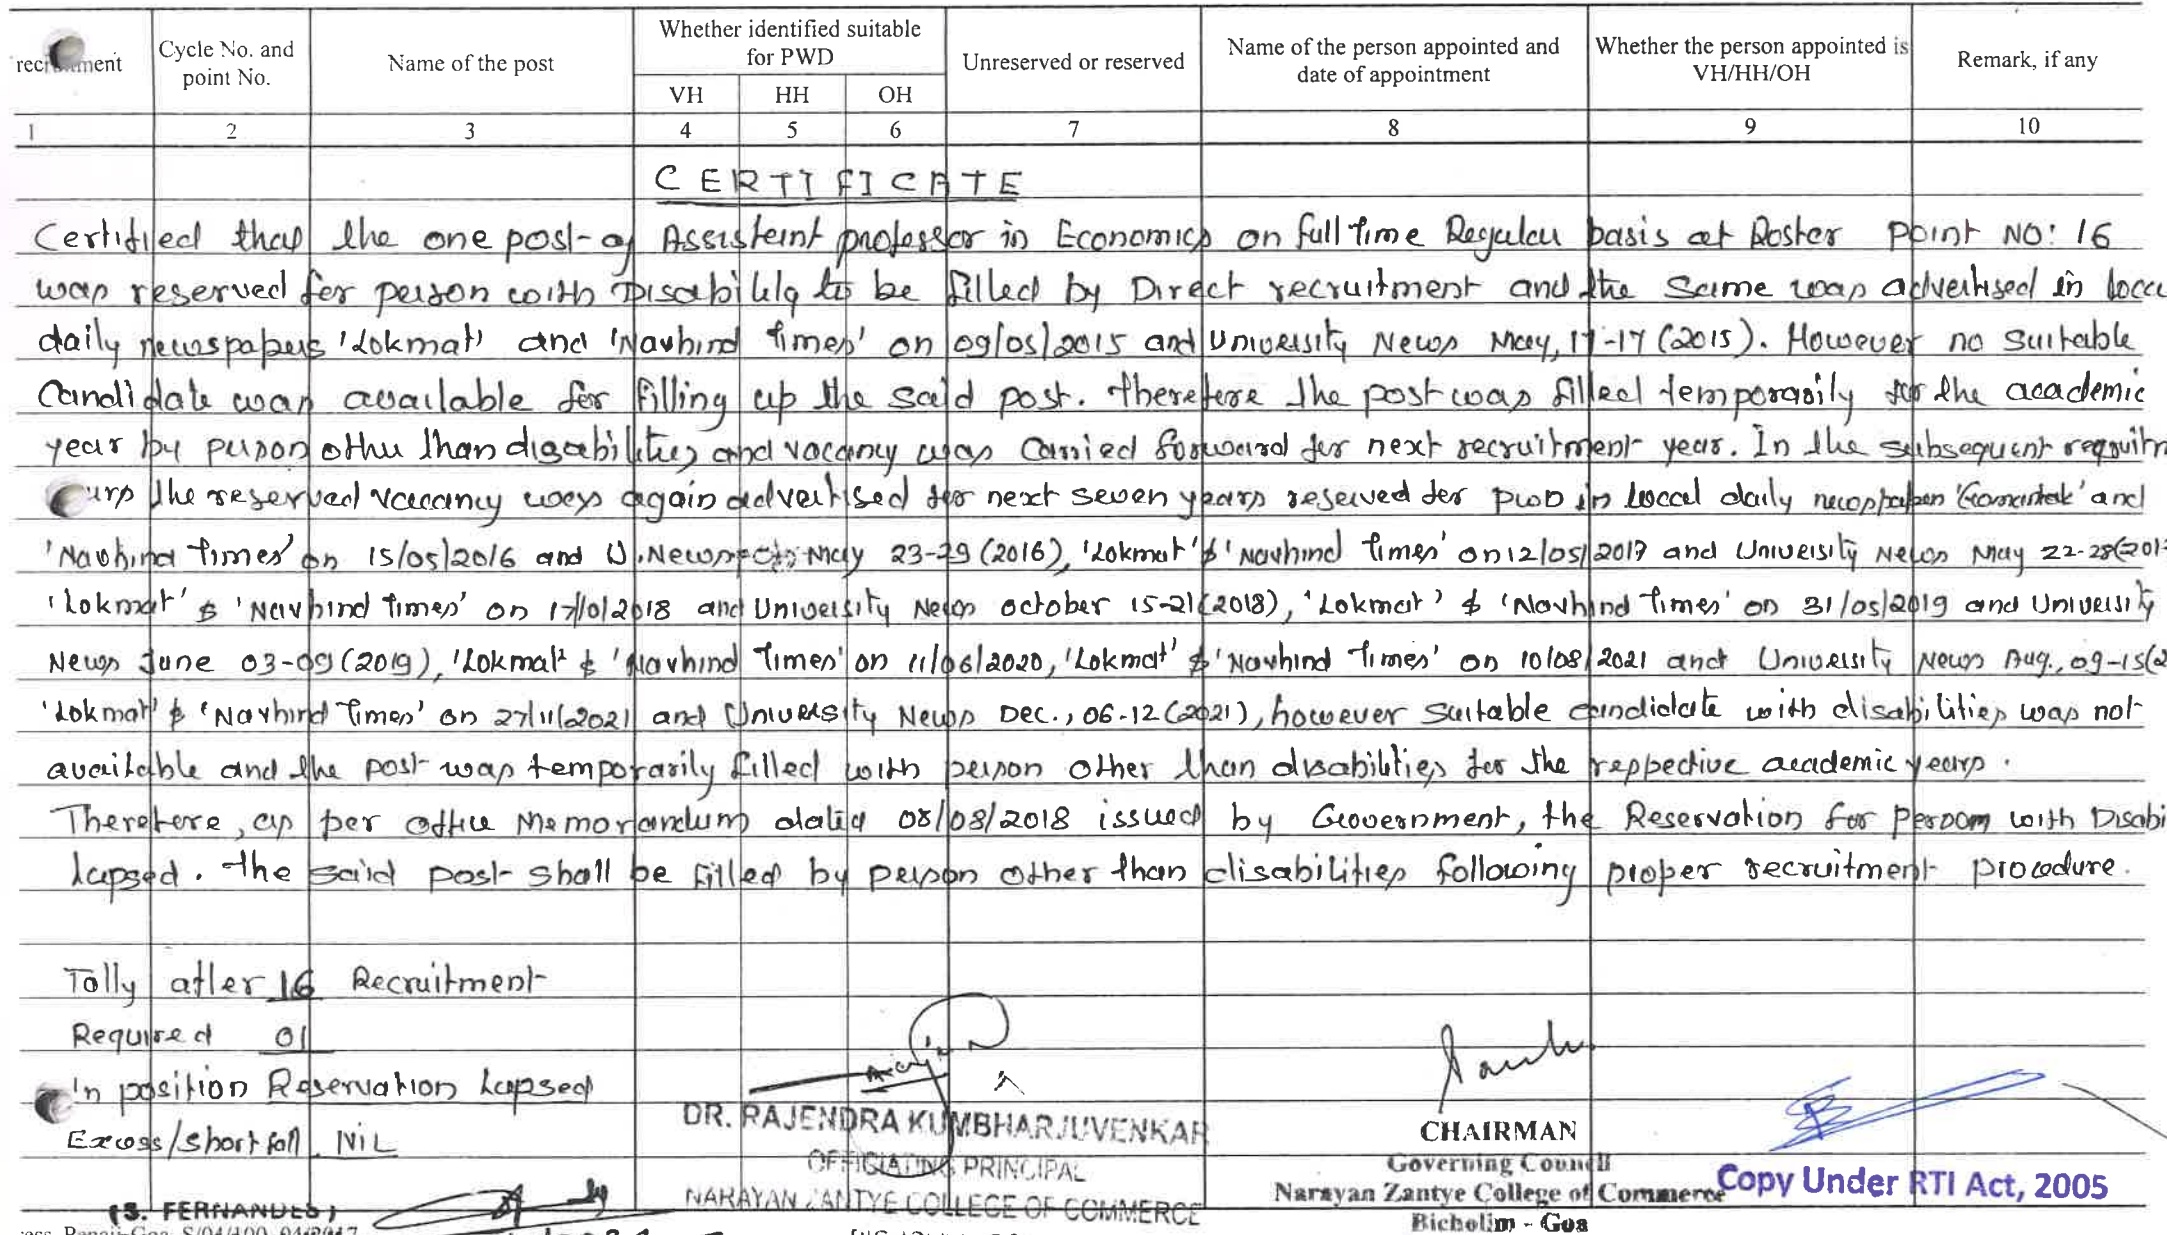 recruitment Cycle No. and point No. Name of the post Whether identified suitable for PWD Unreserved or reserved Name of the person appointed and date of appointment Whether the person appointed is VH/HH/OH Remark, if any
VH HH OH
1 2 3 4 5 6 7 8 9 10
CERTIFICATE
Certified that the one post of Assistant professor in Economics on full time Regular basis at Roster point NO: 16
was reserved for person with Disability to be filled by Direct recruitment and the same was advertised in local
daily newspapers 'Lokmat' and 'Navhind Times' on 09/05/2015 and University News May, 11-17 (2015). However no suitable
Candidate was available for filling up the said post. Therefore the post was filled temporarily for the academic
year by person other than disabilities and vacancy was carried forward for next recruitment year. In the subsequent
the reserved vacancy was again advertised for next seven years reserved for PWD in local daily newspapers 'Gomantak' and
'Navhind Times' on 15/05/2016 and U. News May 23-29 (2016), 'Lokmat' & 'Navhind Times' on 12/05/2017 and University News May 22-28(201
'Lokmat' & 'Navhind Times' on 17/10/2018 and University News October 15-21(2018), 'Lokmat' & 'Navhind Times' on 31/05/2019 and University
News June 03-09 (2019), 'Lokmat' & 'Navhind Times' on 11/06/2020, 'Lokmat' & 'Navhind Times' on 10/08/2021 and University News Aug., 09-15(2
'Lokmat' & 'Navhind Times' on 27/11/2021 and University News Dec., 06-12 (2021), however suitable candidate with disabilities was not
available and the post was temporarily filled with person other than disabilities for the respective academic years.
Therefore, as per office Memorandum dated 08/08/2018 issued by Government, the Reservation for Person with Disabi
Lapsed. The said post shall be filled by person other than disabilities following proper recruitment procedure.
Tally after 16 Recruitment
Required 01
In position Reservation Lapsed
Excess/Short fall NIL
DR. RAJENDRA KUMBHARJUVENKAR
OFFICIATING PRINCIPAL
NARAYAN ZANTYE COLLEGE OF COMMERCE
CHAIRMAN
Governing Council
Narayan Zantye College of Commerce
Bicholim - Goa
Copy Under RTI Act, 2005
(S. FERNANDES)